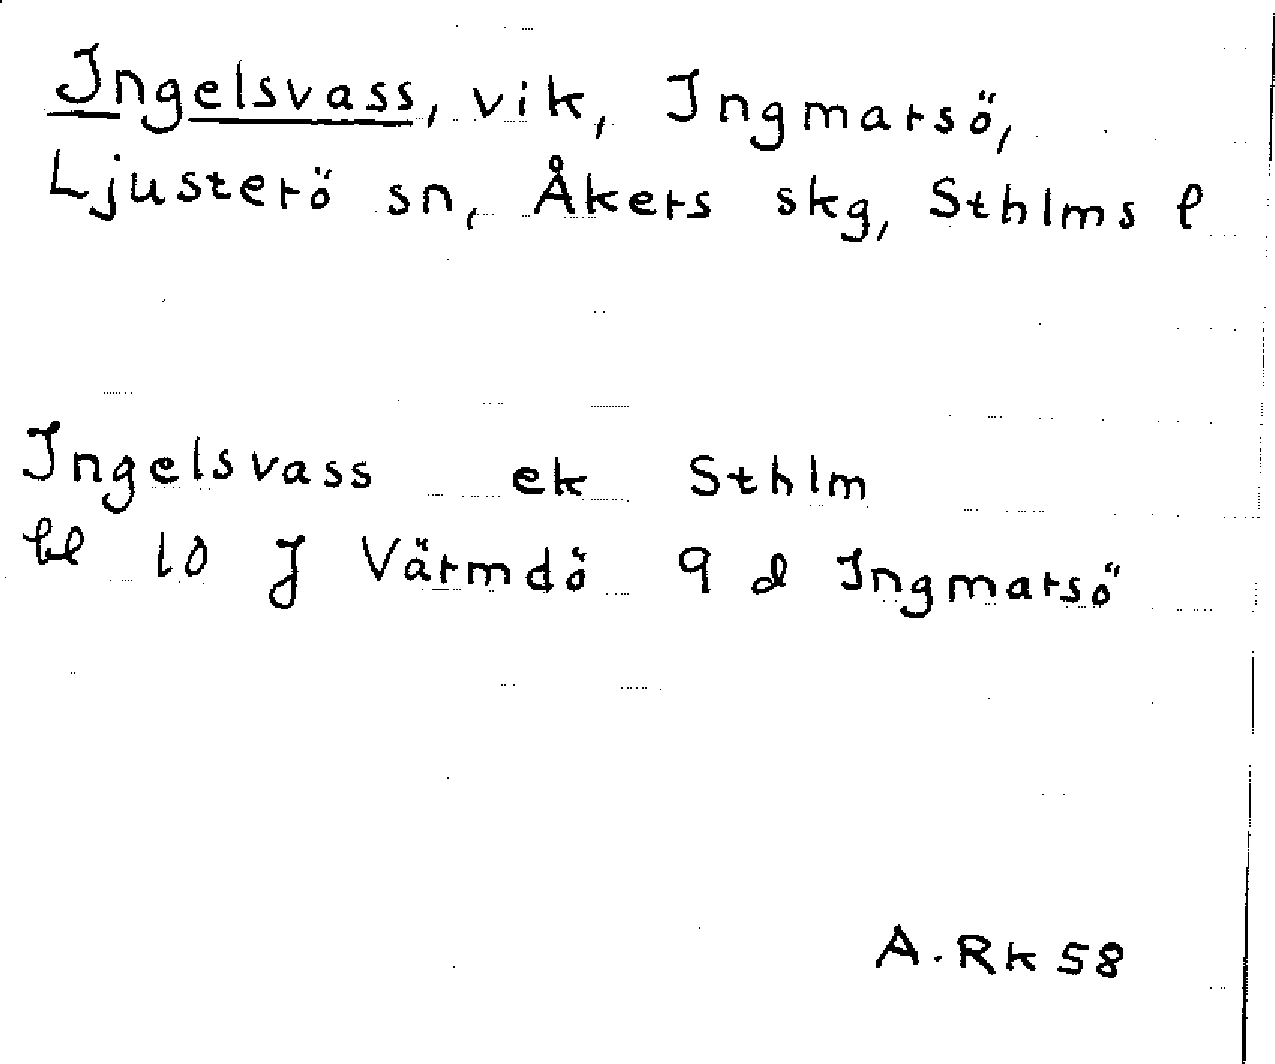 Ingelsvass, vik, Ingmarsö,
Ljusterö sn, Åkers skg, Sthlms l
Ingelsvass ek Sthlm
bl 10 J Värmdö 9 d Ingmarsö
A. Rk 58